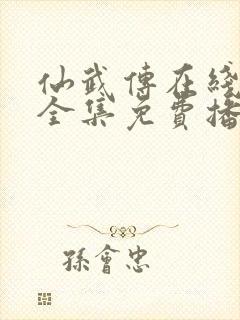 仙武傳在綫
全集免費播
孫會忠